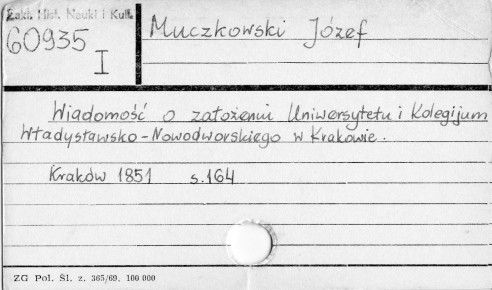 Zakł. Hist. Nauki i Kult.
60935
I
Muczkowski Józef
Wiadomość o założeniu Uniwersytetu i Kolegijum
Władysławsko-Nowodworskiego w Krakowie.
Kraków 1851 s.164
ZG Pol. Śl. z. 365/69. 100 000